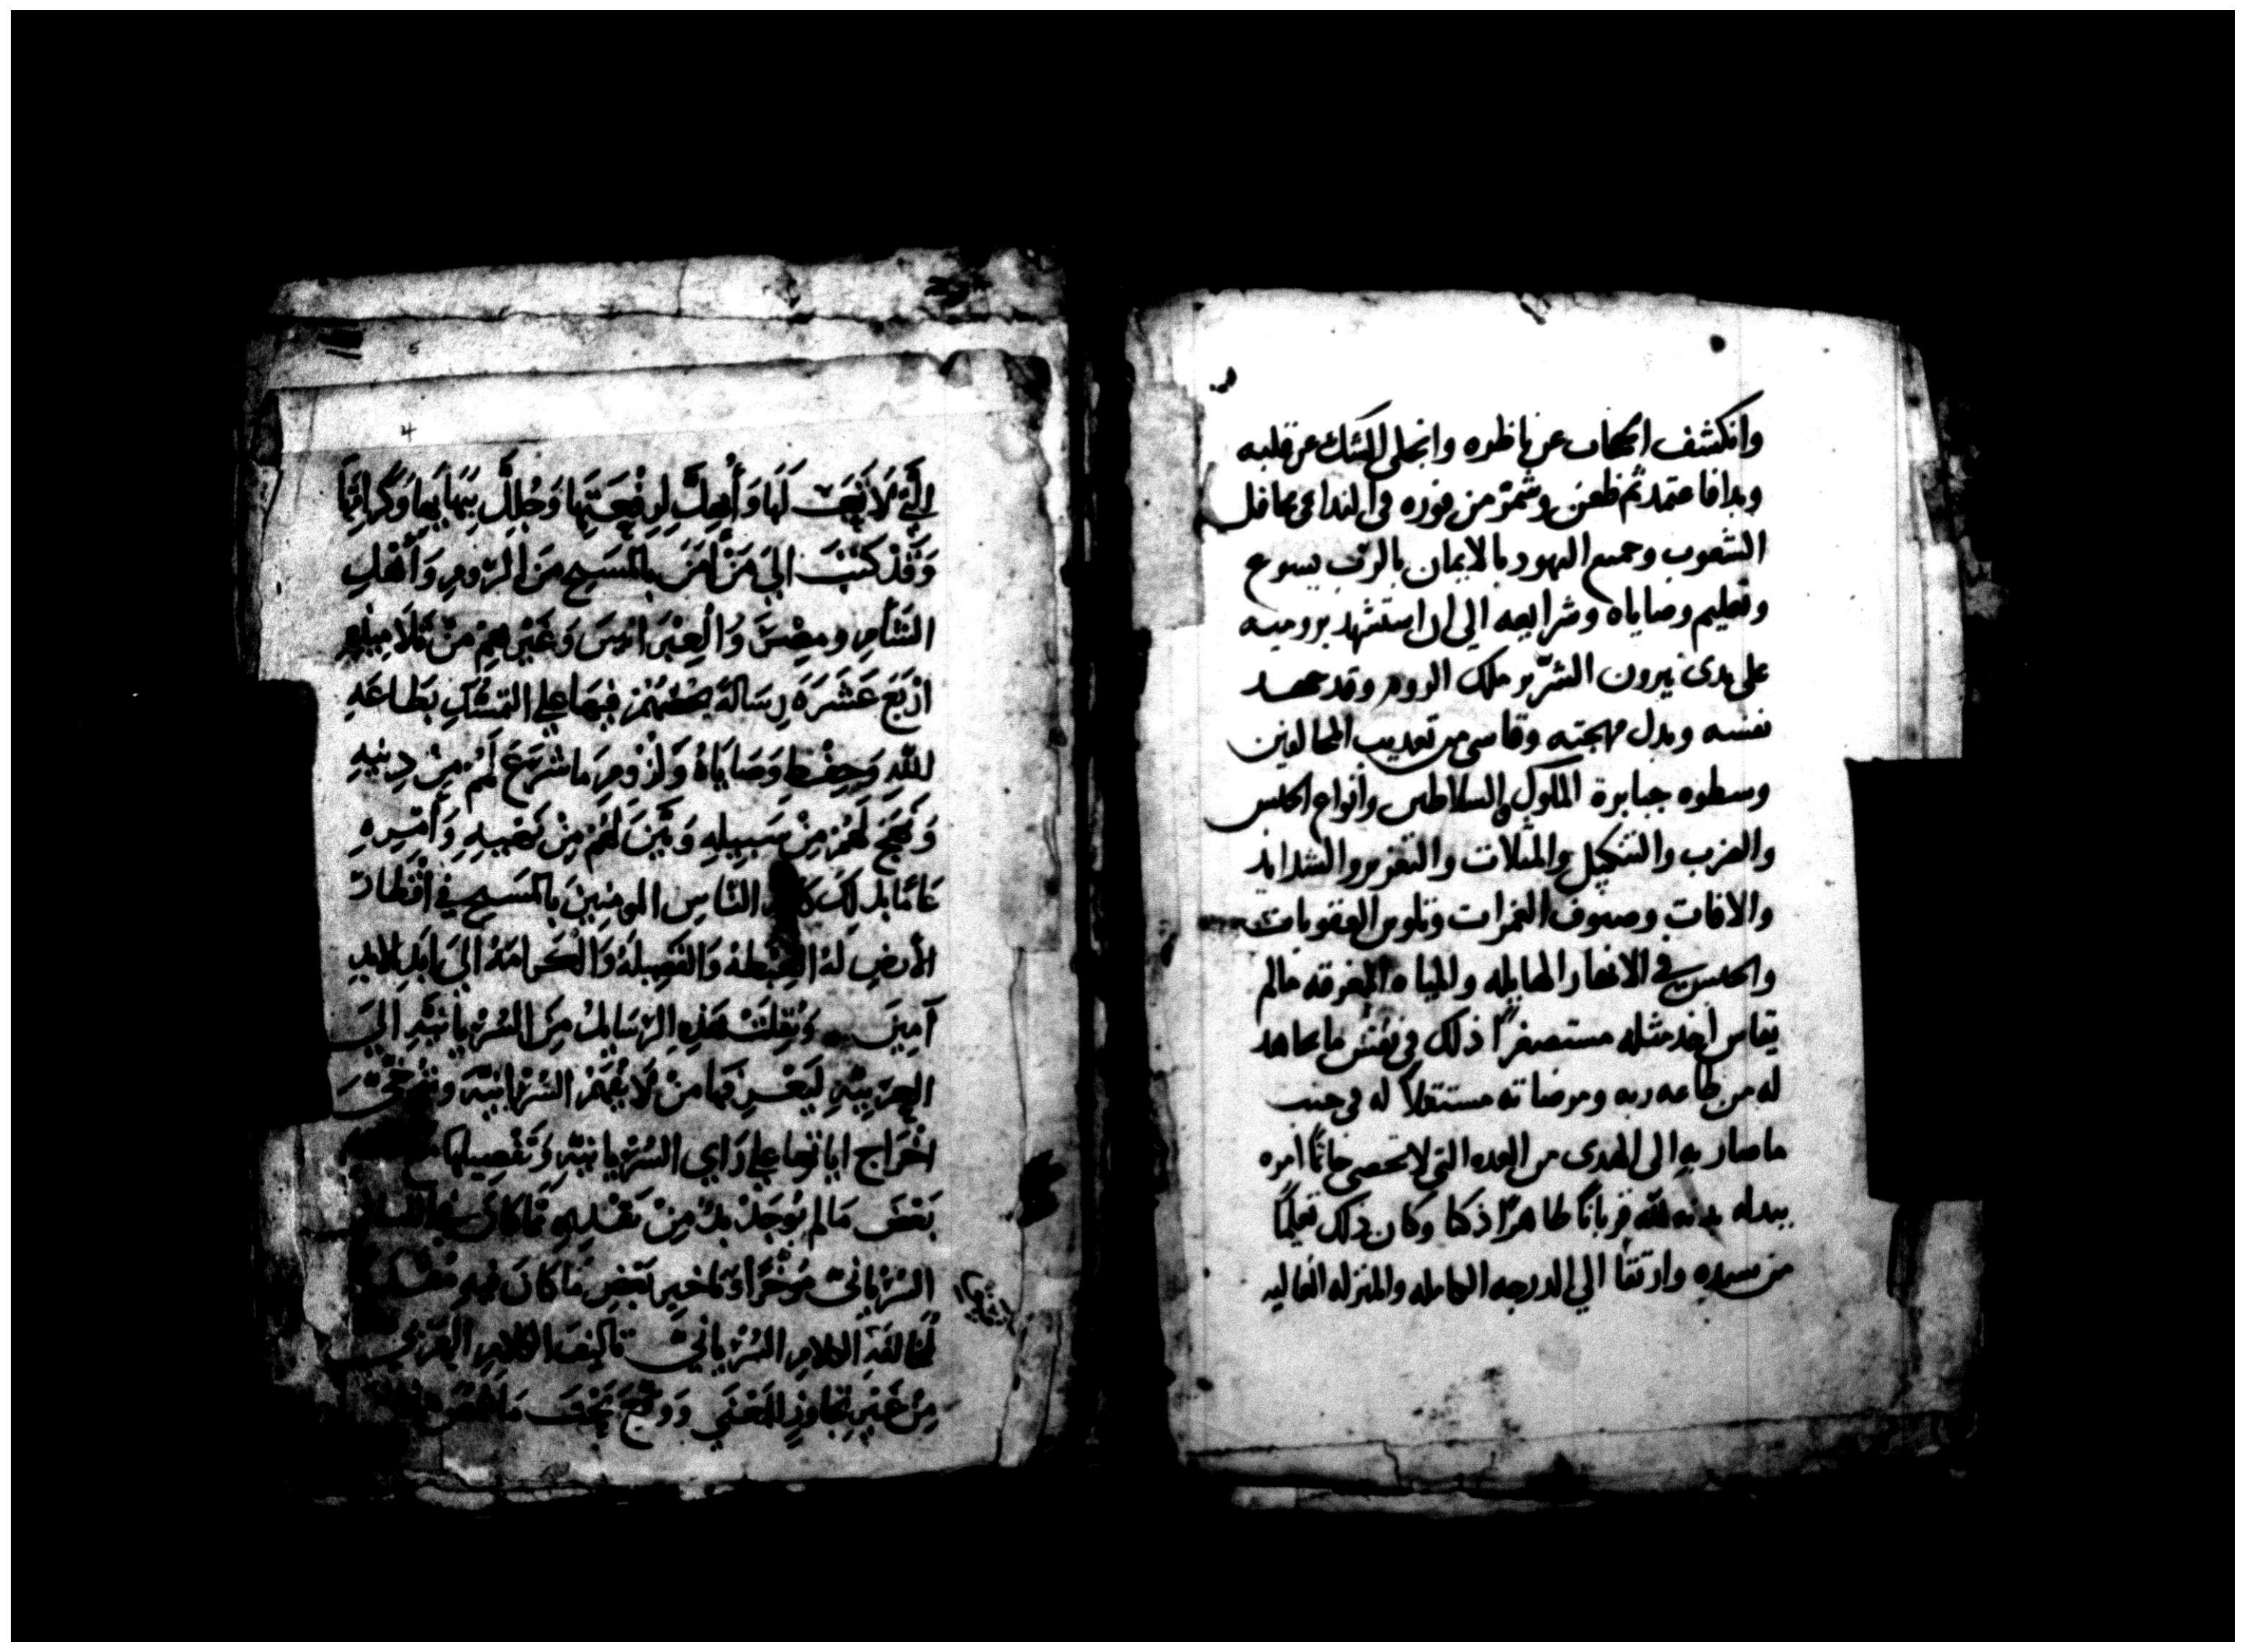 وانكشف الحجاب عن ناظره وانجلى الشك عن قلبه
وبدا فاعتمد ثم ظعن وشمر من فوره في الندا في محافل
الشعوب وجميع اليهود بالايمان بالرب يسوع
وتعليم وصاياه وشرايعه الي ان استشهد برومية
على يدى نيرون الشرير ملك الروم وقد
نفسه وبدل مهجته وقاسى من تعديب المخالفين
وسطوه جبابرة الملوك والسلاطين وأنواع الحبس
والضرب والتنكيل والمثلات والتغرير والشدايد
والافات وصنوف الغمرات وتلوين العقوبات
والحبس في الهايله والمياه المغرقه مالم
يقاس احد مثله مستصغرًا ذلك في نفس ما يجاهد
له من طاعه ربه ومرضاته مستقلًا له في جنب
ما صار به الى الهدى من العده التي لا تحصى خاتمًا امره
ببدله بدنه لله قربانًا طاهرًا ذكيا وكان ذلك تعليمًا
من سيده وارتقا الي الدرجه الكامله والمنزله العاليه
4
الَّتي لَا نعت لَهَا وَلَا لِرفعتِهَا وَجُليل بَهايها وَكَرامتها
وَقَدْ كتبَ اليَ مَنْ امَنَ بالمَسيح منَ الرُومِ وَأَهْلِ
الشَأمِ ومِصْرَ وَالعِبْرَانيينَ وَغَيْرهِمْ مِنْ تَلَاميذهِ
ارْبَعَ عَشَرَةَ رِسَالَةً يَحثهُمْ فِيهَا عَلي التَمسُّكِ بِطَاعَةِ
للهِ وَحِفْظِ وَصَايَاهُ وَلزُومِ مَا شَرعَ لَهُمْ مِنْ دِينِهِ
وَنَهجَ لَهُمْ مِنْ سَبِيلهِ وَبَيَّنَ لَهُمْ مِنْ نَهيهِ وَأَمْرِهِ
عَامًا بدلِكَ النَّاسِ المومِنِينَ بِالمَسِيحِ في أَقْطَارِ
الأرضِ لهُ الغِبْطَةُ وَالفَضِيلَةُ وَالْكَرامَةُ اليَ ابَدِ الابدِ
آمِينَ وَنُقِلَتْ هَذِهِ الرَسَايِلُ مِنَ السُّرْيَانيَّةِ اليَ
العَرَبيَّةِ ليَعْرِفَهَا مَنْ لَا يَفْهَمُ السُّرْيَانيَّةَ
اخْرَاج علي رَاي السُّرْيَانيَّةِ وَتَفْصيلها
بَعْضَ مَالم يُوجَدْ بدٌ مِنْ
السُّرْيَانيّ مُوَخَّرًا وتَاخيرِ بَعْضِ مَا كَانَ فيهِ
لمخَالَفةِ الكَلامِ السُّرْيَانيّ تاليفَ الكَلَامِ العَرَبيِّ
مِنْ غَيْرِ تَجَاوزٍ للمَعْنَي وَوضعَ تَحْتَ